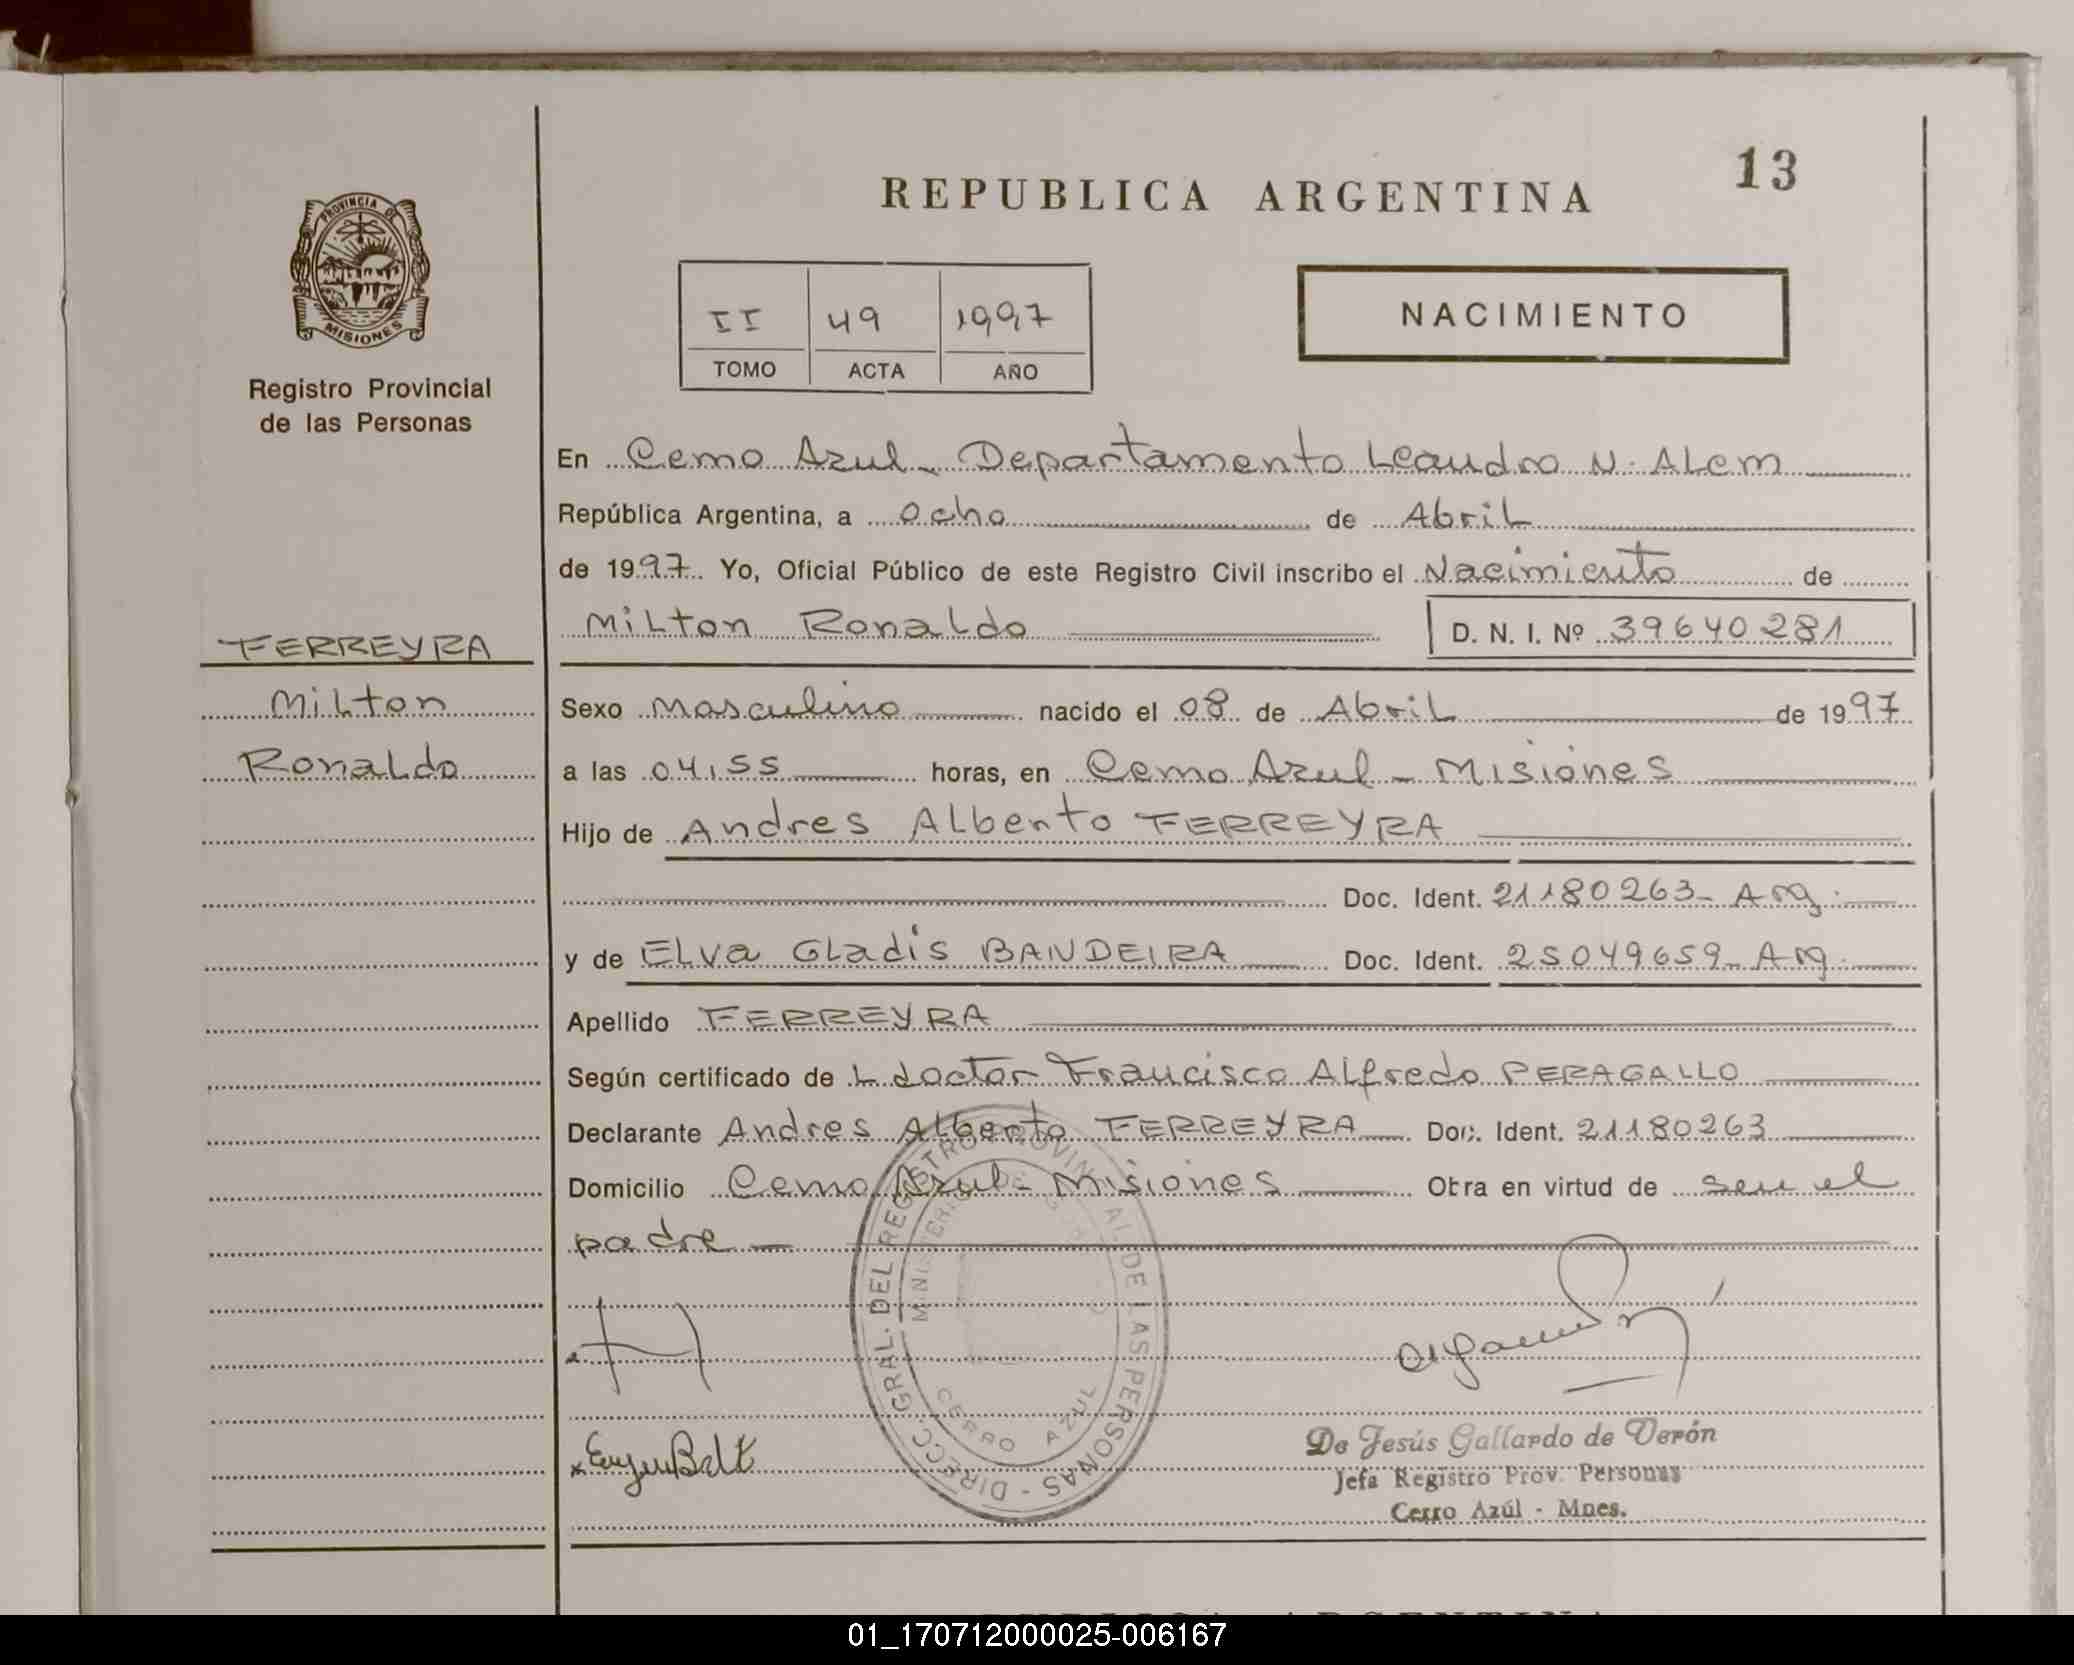 REPUBLICA ARGENTINA
13
PROVINCIA DE
MISIONES
Registro Provincial
de las Personas
II 49 1997
TOMO ACTA AÑO
NACIMIENTO
En Cerro Azul - Departamento Leandro N. Alem
República Argentina, a Ocho de Abril
de 1997. Yo, Oficial Público de este Registro Civil inscribo el Nacimiento de
Milton Ronaldo D. N. I. Nº 39640281
FERREYRA
Milton
Ronaldo
Sexo Masculino nacido el 08 de Abril de 1997
a las 04,55 horas, en Cerro Azul - Misiones
Hijo de Andres Alberto FERREYRA
Doc. Ident. 21180263 - Arg.
y de Elva Gladis BANDEIRA Doc. Ident. 25049659 - Arg.
Apellido FERREYRA
Según certificado de L doctor Francisco Alfredo PERAGALLO
Declarante Andres Alberto FERREYRA Doc. Ident. 21180263
Domicilio Cerro Azul - Misiones Obra en virtud de ser el
padre -
DIRECC. GRAL. DEL REGISTRO PROVINCIAL DE LAS PERSONAS -
MINISTERIO DE GOBIERNO
CERRO AZUL
De Jesús Gallardo de Verón
Jefa Registro Prov. Personas
Cerro Azúl - Mnes.
REPUBLICA ARGENTINA
01_170712000025-006167